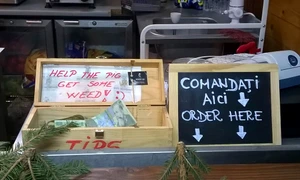 HELP THE PIG
GET SOME
WEED!
TIDE
COMANDAȚI
AICI
ORDER HERE